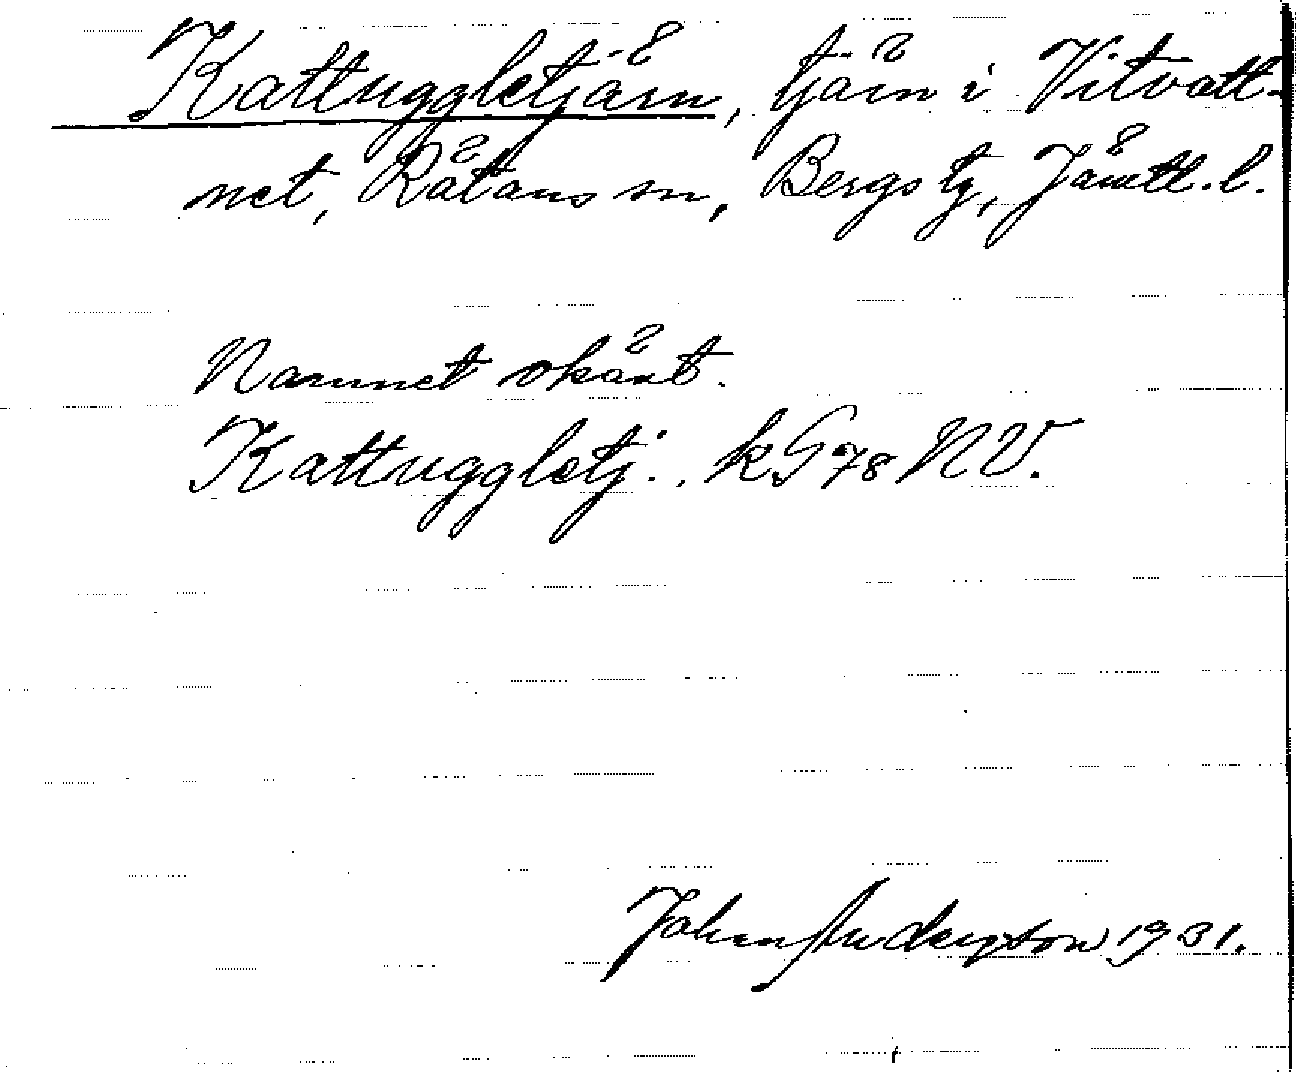 Kattuggletjärn, tjärn i Vitvatt-
net, Rätans sn, Bergs tg, Jämtl. l.
Namnet okänt.
Kattuggletj: . kG78 NV.
Johan Anderzson 1931.